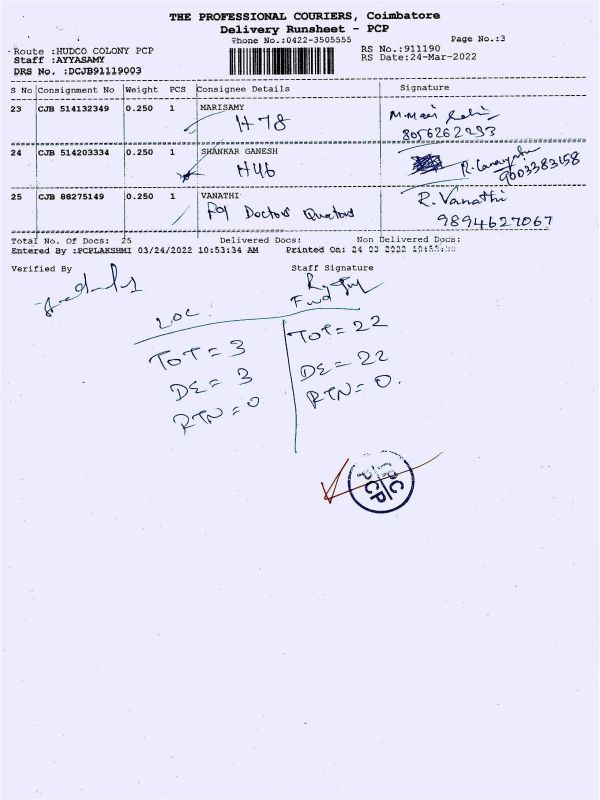 THE PROFESSIONAL COURIERS, Coimbatore
Delivery Runsheet - PCP
Phone No.:0422-3505555 Page No.:3
Route :HUDCO COLONY PCP RS No.:911190
Staff :AYYASAMY RS Date:24-Mar-2022
DRS No. :DCJB91119003
S No Consignment No Weight PCS Consignee Details Signature
23 CJB 514132349 0.250 1 MARISAMY
H-78
8056262293
24 CJB 514203334 0.250 1 SHANKAR GANESH
H46
9003383158
25 CJB 88275149 0.250 1 VANATHI R. Vanathi
Doctors Quators 9894627067
Total No. Of Docs: 25 Delivered Docs: Non Delivered Docs:
Entered By :PCPLAKSHMI 03/24/2022 10:53:34 AM Printed On: 24 03 2022
Verified By Staff Signature
LOC Fwd
TOT = 3 TOT = 22
DE = 3 DE = 22
RTN = 0 RTN = 0.
PCP